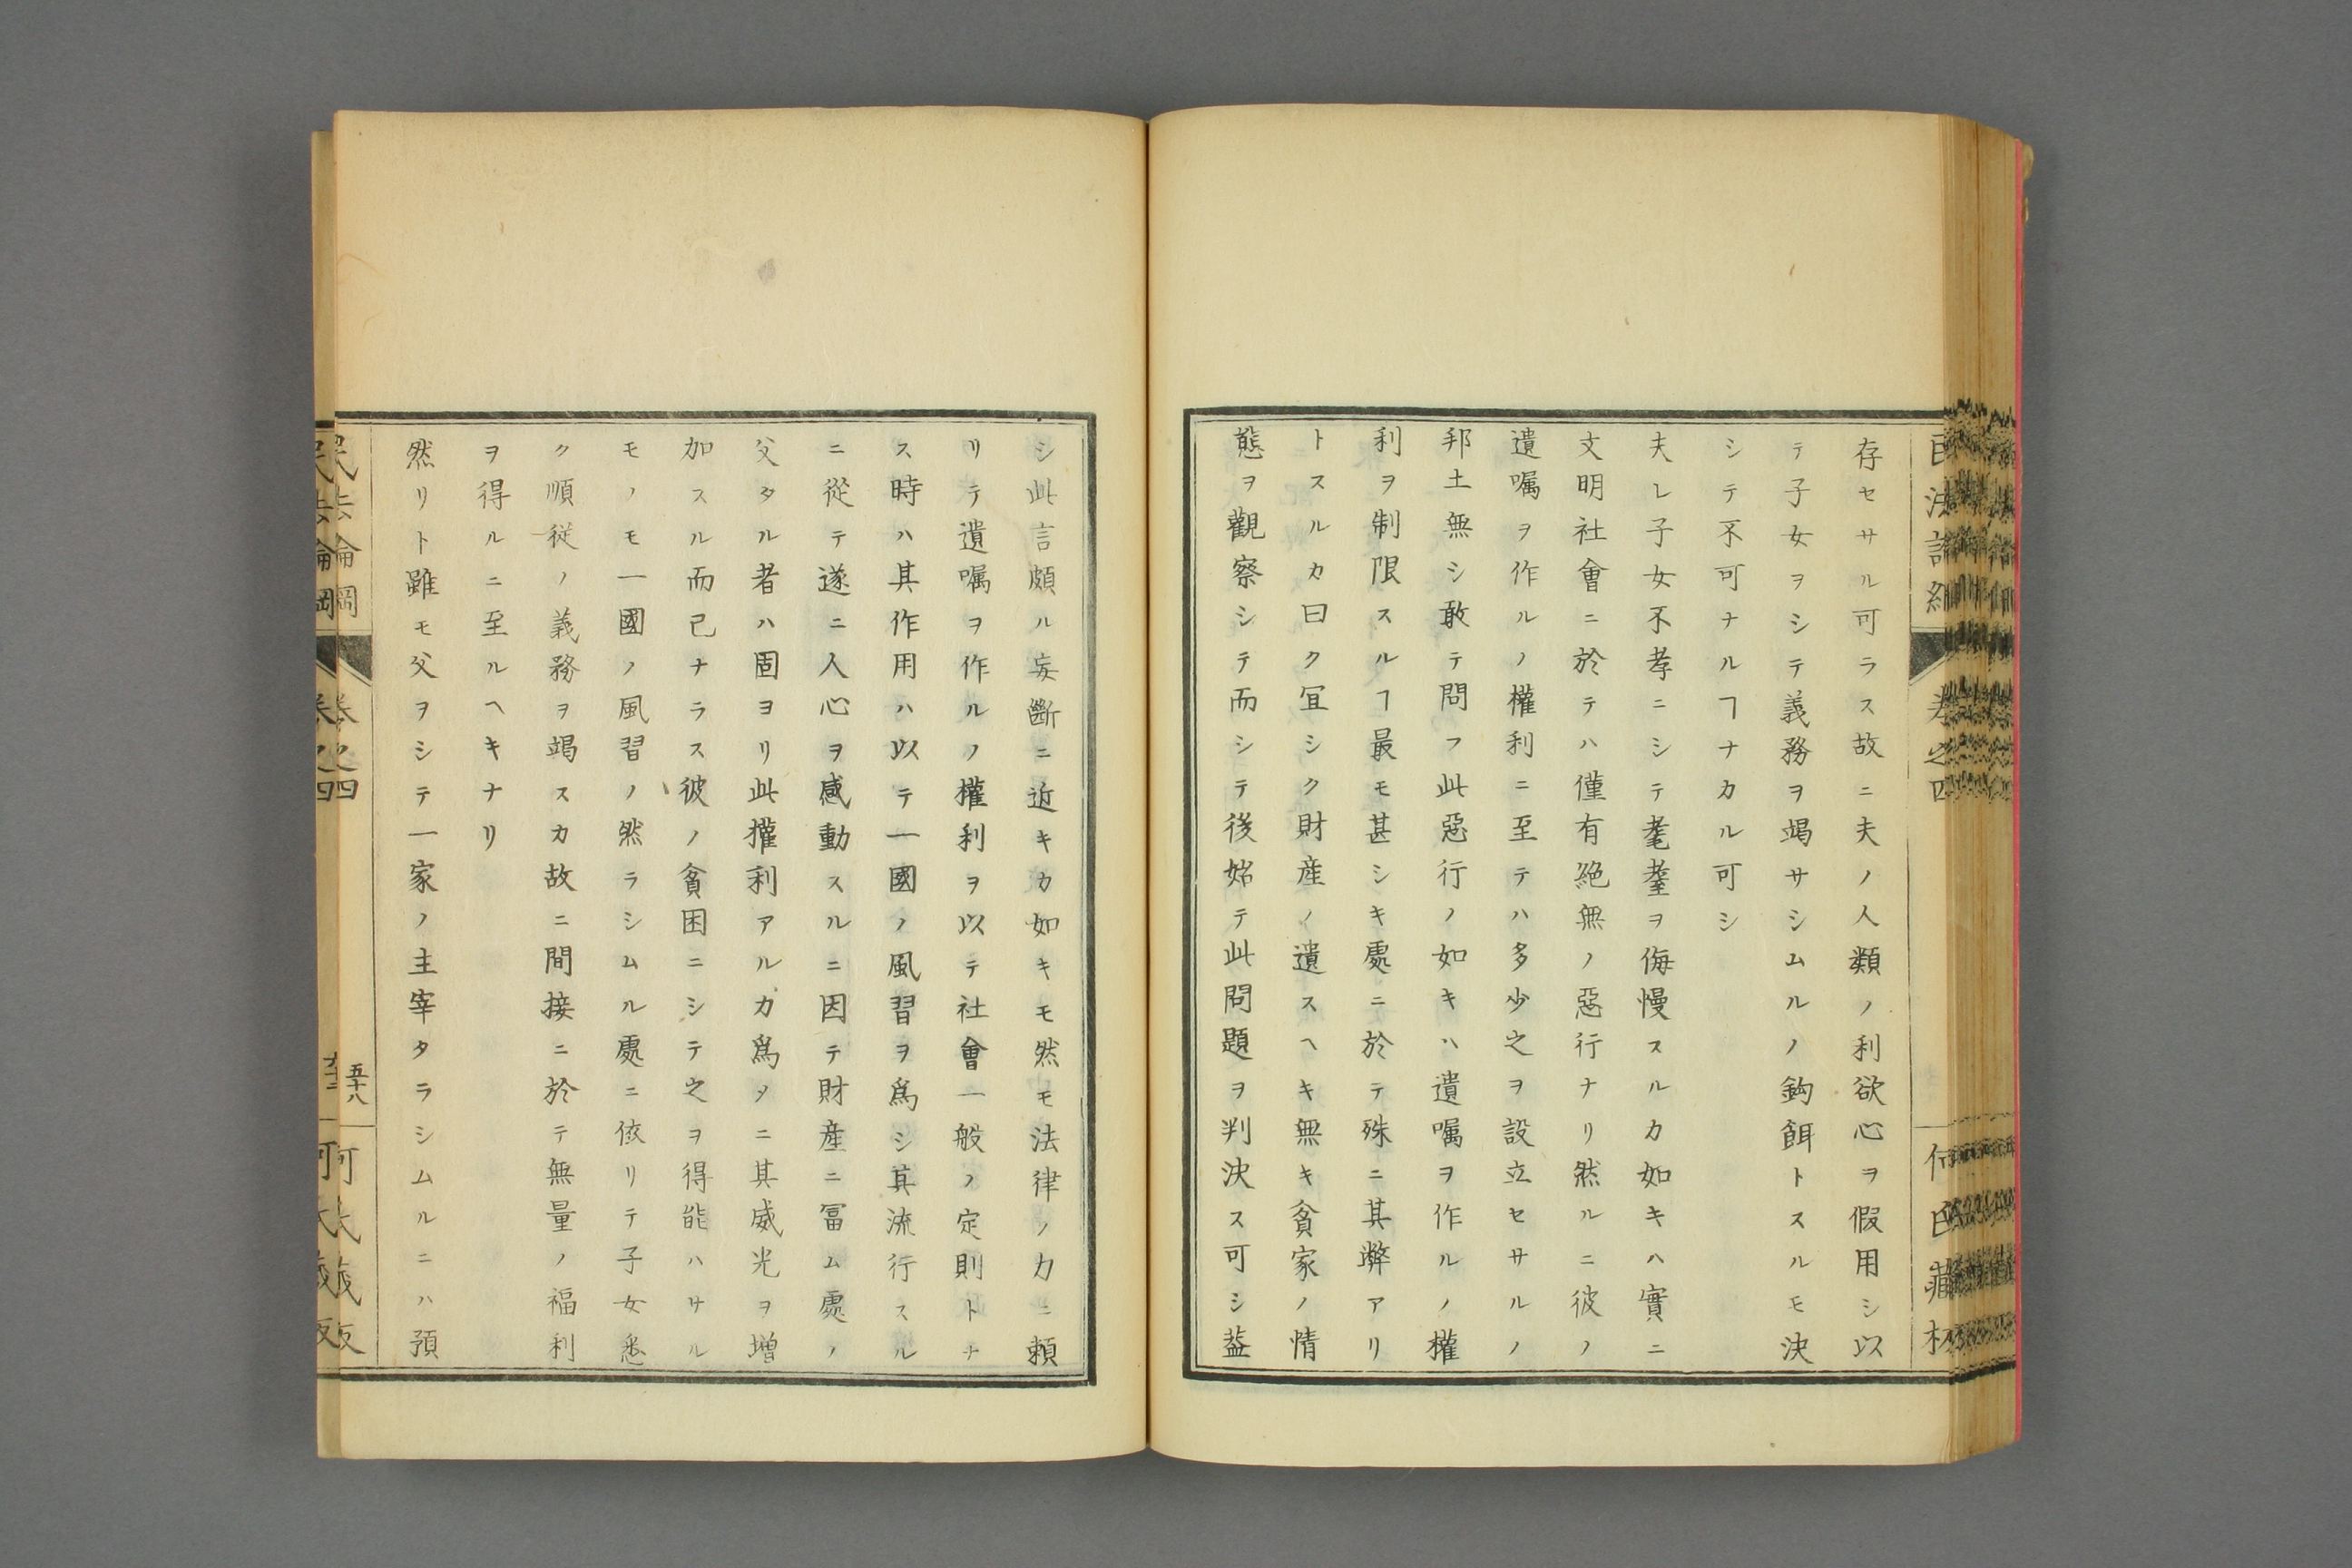 存セサル可ラス故ニ夫ノ人類ノ利欲心ヲ假用シ以
テ子女ヲシテ義務ヲ竭サシムルノ鈎餌トスルモ決
シテ不可ナルヿナカル可シ
夫レ子女不孝ニシテ耄耋ヲ侮慢スルカ如キハ實ニ
文明社會ニ於テハ僅有絶無ノ惡行ナリ然ルニ彼ノ
遺嘱ヲ作ルノ權利ニ至テハ多少之ヲ設立セサルノ
邦土無シ敢テ問フ此惡行ノ如キハ遺嘱ヲ作ルノ權
利ヲ制限スルヿ最モ甚シキ處ニ於テ殊ニ其弊アリ
トスルカ曰ク冝シク財産ノ遺スヘキ無キ貧家ノ情
態ヲ觀察シテ而シテ後始テ此問題ヲ判決ス可シ葢
シ此言頗ル妄斷ニ近キカ如キモ然モ法律ノ力ニ頼
リテ遺嘱ヲ作ルノ權利ヲ以テ社會一般ノ定則トナ
ス時ハ其作用ハ以テ一國ノ風習ヲ爲シ其流行スル
ニ從テ遂ニ人心ヲ感動スルニ因テ財産ニ冨ム處ノ
父タル者ハ固ヨリ此權利アルカ爲メニ其威光ヲ增
加スル而已ナラス彼ノ貧困ニシテ之ヲ得能ハサル
モノモ一國ノ風習ノ然ラシムル處ニ依リテ子女悉
ク順從ノ義務ヲ竭スカ故ニ間接ニ於テ無量ノ福利
ヲ得ルニ至ルヘキナリ
然リト雖モ父ヲシテ一家ノ主宰タラシムルニハ預
卷之四
五十八